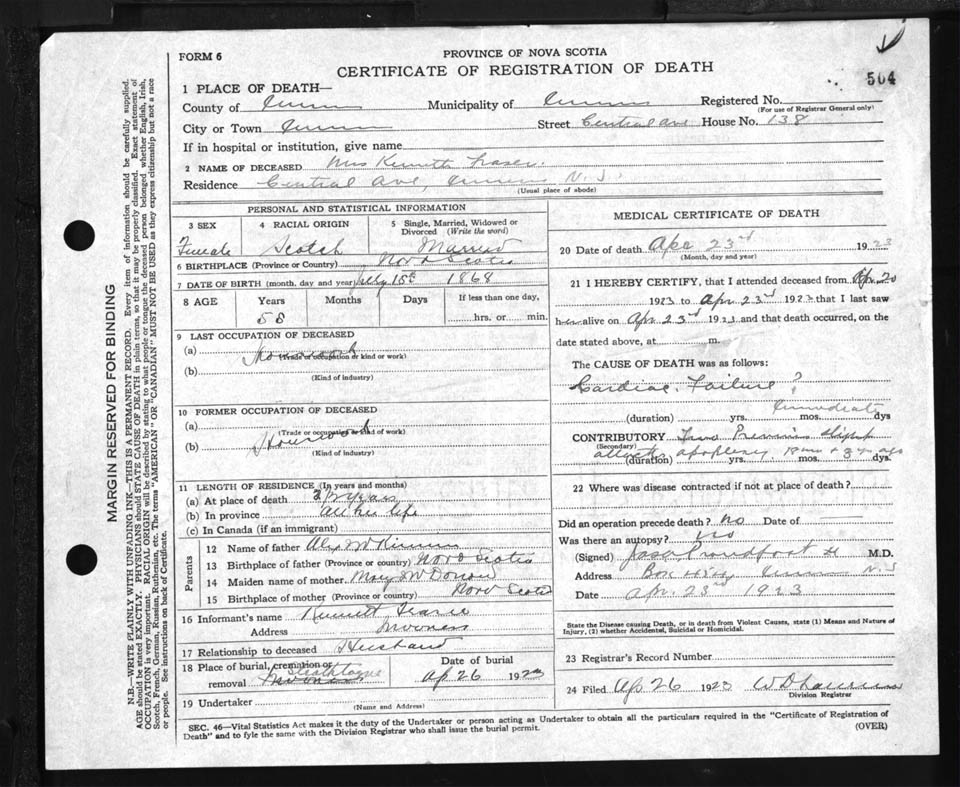 504
FORM 6
PROVINCE OF NOVA SCOTIA
CERTIFICATE OF REGISTRATION OF DEATH
1 PLACE OF DEATH—
County of Municipality of Registered No.
(For use of Registrar General only)
City or Town Street Central Ave House No. 138
If in hospital or institution, give name
2 NAME OF DECEASED Mrs Kenneth Fraser.
Residence Central Ave, N.S.
(Usual place of abode)
PERSONAL AND STATISTICAL INFORMATION
3 SEX 4 RACIAL ORIGIN 5 Single, Married, Widowed or Divorced (Write the word)
Female Scotch Married
6 BIRTHPLACE (Province or Country) Nova Scotia
7 DATE OF BIRTH (month, day and year) 15th 1868
8 AGE Years Months Days If less than one day,
55 hrs. or min.
9 LAST OCCUPATION OF DECEASED
(a) Housework
(Trade or occupation or kind or work)
(b)
(Kind of industry)
10 FORMER OCCUPATION OF DECEASED
(a)
(Trade or occupation or kind of work)
(b) Housework
(Kind of industry)
11 LENGTH OF RESIDENCE (In years and months)
(a) At place of death years
(b) In province all her life
(c) In Canada (if an immigrant)
Parents
12 Name of father Alex
13 Birthplace of father (Province or country) Nova Scotia
14 Maiden name of mother Mary
15 Birthplace of mother (Province or Country) Nova Scotia
16 Informant's name Kenneth
Address Inverness
17 Relationship to deceased Husband
18 Place of burial, cremation or
removal Inverness
Date of burial
Ap 26 1923
19 Undertaker
(Name and Address)
MEDICAL CERTIFICATE OF DEATH
20 Date of death Apr 23rd 1923
(Month, day and year)
21 I HEREBY CERTIFY, that I attended deceased from Apr. 20
1923 to Apr 23rd 1923 that I last saw
her alive on Apr 23rd 1923 and that death occurred, on the
date stated above, at m.
The CAUSE OF DEATH was as follows:
Cardiac Failure ?
Immediate
(duration) yrs. mos. dys
CONTRIBUTORY Two Previous slight
(Secondary)
attacks apoplexy
(duration) yrs. dys.
22 Where was disease contracted if not at place of death?
Did an operation precede death? no Date of
Was there an autopsy? no
(Signed) M.D.
Address Box N.S
Date Apr. 23rd 1923
State the Disease causing Death, or in death from Violent Causes, state (1) Means and Nature of
Injury, (2) whether Accidental, Suicidal or Homicidal.
23 Registrar's Record Number
24 Filed Ap 26 1923
Division Registrar
SEC. 46—Vital Statistics Act makes it the duty of the Undertaker or person acting as Undertaker to obtain all the particulars required in the "Certificate of Registration of
Death" and to fyle the same with the Division Registrar who shall issue the burial permit.
(OVER)
MARGIN RESERVED FOR BINDING
N.B.—WRITE PLAINLY WITH UNFADING INK—THIS IS A PERMANENT RECORD. Every item of information should be carefully supplied.
AGE should be stated EXACTLY. PHYSICIANS should STATE CAUSE OF DEATH in plain terms, so that it may be properly classified. Exact statement of
OCCUPATION is very important. RACIAL ORIGIN will be described by stating to what people or tongue the deceased person belonged whether English, Irish,
Scotch, French, German, Russian, Ruthenian, etc. The terms "AMERICAN" or "CANADIAN" MUST NOT BE USED as they express citizenship but not a race
or people. See instructions on back of Certificate.